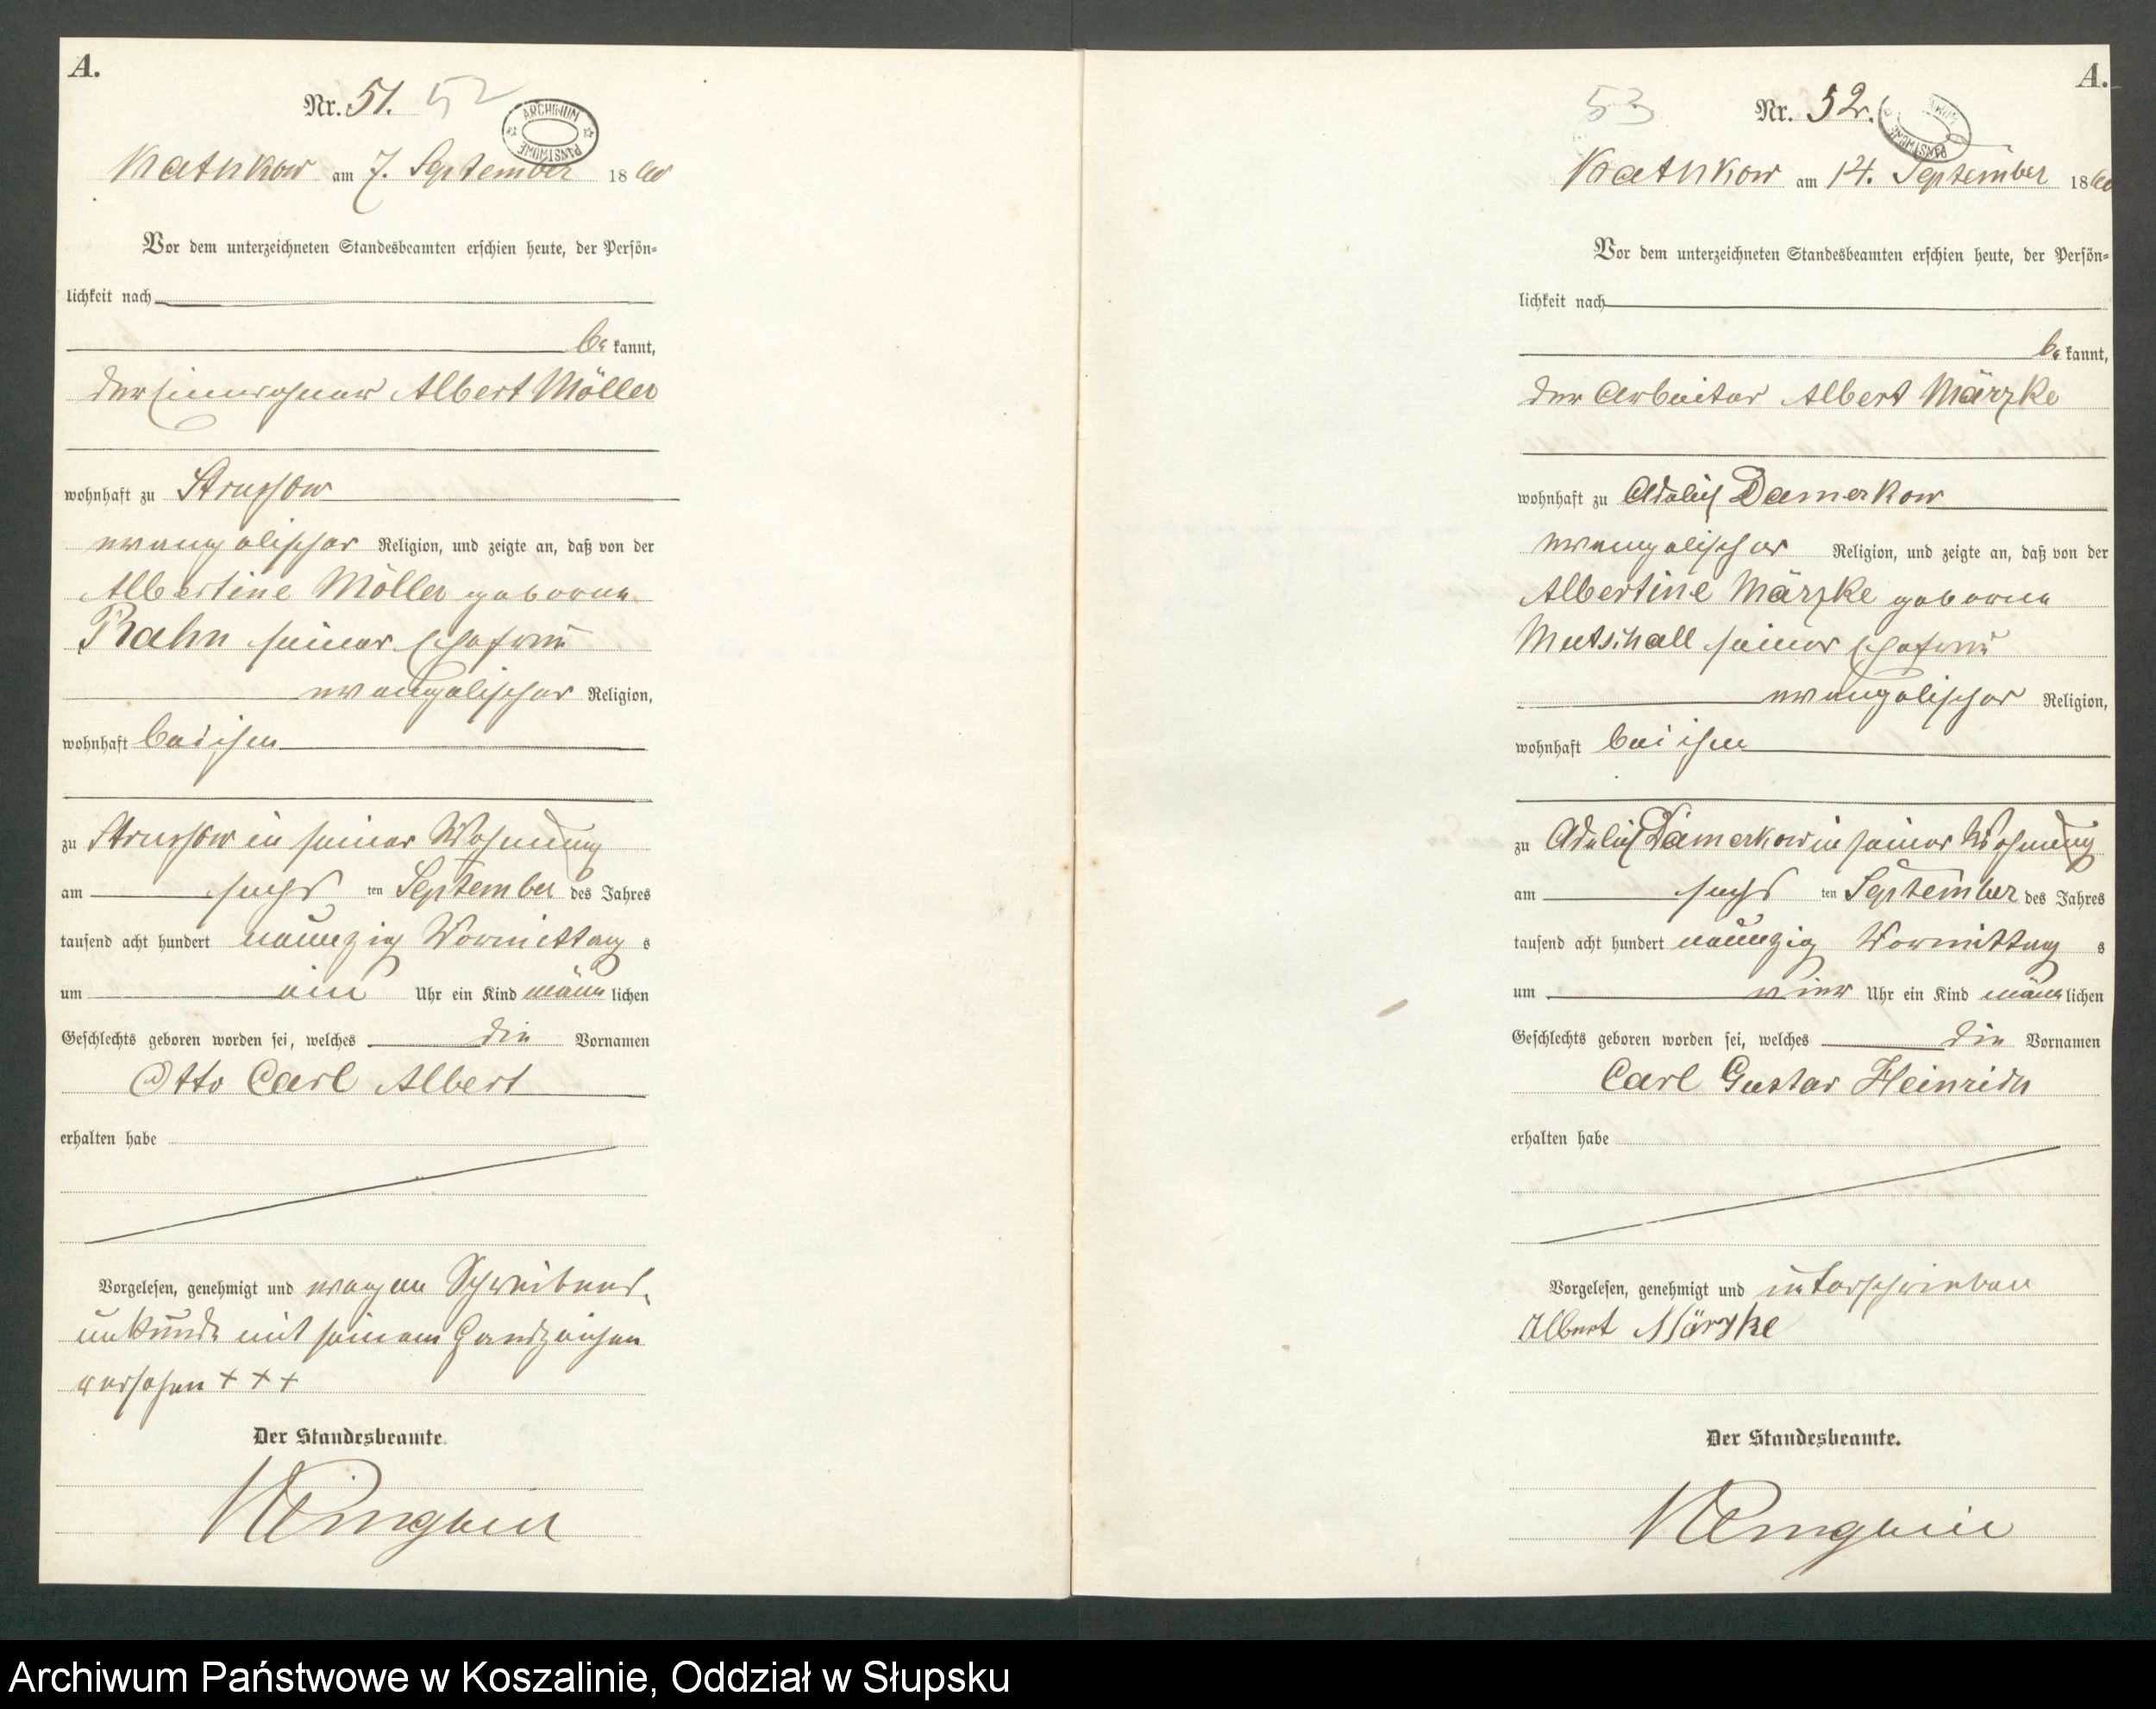 A.
Nr. 51. 52
ARCHIWUM PAŃSTWOWE
Kathkow am 7. September 1890
Vor dem unterzeichneten Standesbeamten erschien heute, der Persön-
lichkeit nach
be kannt,
der Einwohner Albert Möller
wohnhaft zu Strussow
evangelischer Religion, und zeigte an, daß von der
Albertine Möller geborene
Rahn seiner Ehefrau
evangelischer Religion,
wohnhaft bei ihm
zu Strussow in seiner Wohnung
am sechs ten September des Jahres
tausend acht hundert neunzig Vormittag s
um ein Uhr ein Kind männ lichen
Geschlechts geboren worden sei, welches die Vornamen
Otto Carl Albert
erhalten habe
Vorgelesen, genehmigt und wegen Schreibens-
unkunde mit seinem Handzeichen
versehen + + +
Der Standesbeamte.
A.
53 Nr. 52.
Kathkow am 14. September 1890
Vor dem unterzeichneten Standesbeamten erschien heute, der Persön-
lichkeit nach
be kannt,
der Arbeiter Albert Märzke
wohnhaft zu Adelich Damerkow
evangelischer Religion, und zeigte an, daß von der
Albertine Märzke geborene
Mutschall seiner Ehefrau
evangelischer Religion,
wohnhaft bei ihm
zu Adelich Damerkow in seiner Wohnung
am sechs ten September des Jahres
tausend acht hundert neunzig Vormittag s
um vier Uhr ein Kind männ lichen
Geschlechts geboren worden sei, welches die Vornamen
Carl Gustav Heinrich
erhalten habe
Vorgelesen, genehmigt und unterschrieben
Albert Märzke
Der Standesbeamte.
Archiwum Państwowe w Koszalinie, Oddział w Słupsku